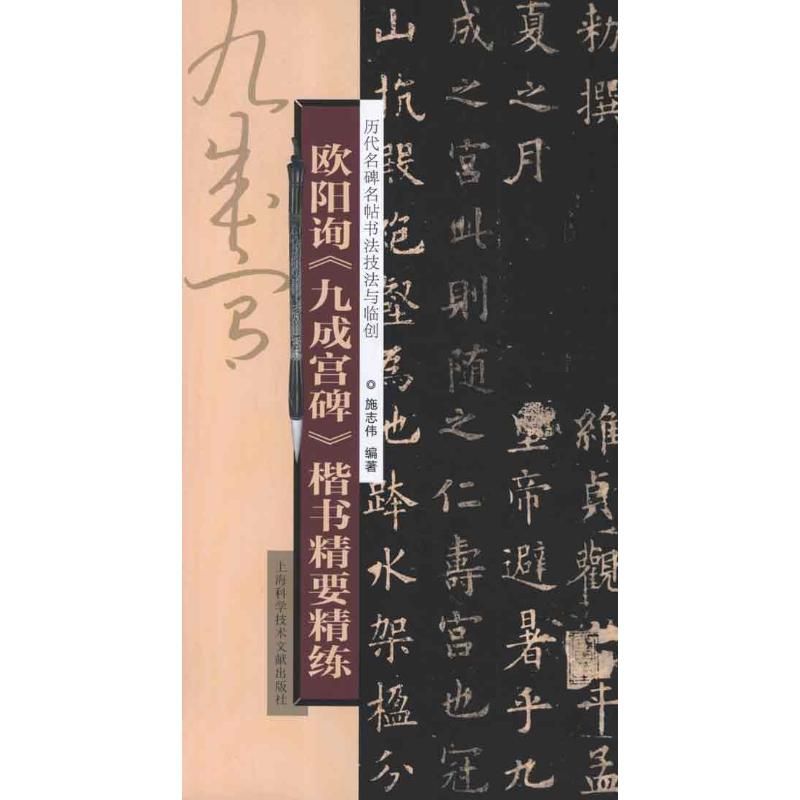 九成宫
欧阳询《九成宫碑》楷书精要精练
历代名碑名帖书法技法与临创
◎ 施志伟 编著
上海科学技术文献出版社
勑撰
維貞觀
年孟
夏之月
皇帝避暑乎九
成之宮此則隨之仁壽宮也冠
山抗殿絶壑為池跨水架楹分